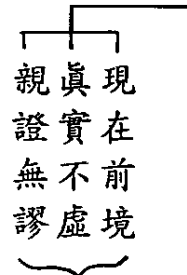 現在前境
眞實不虛
親證無謬